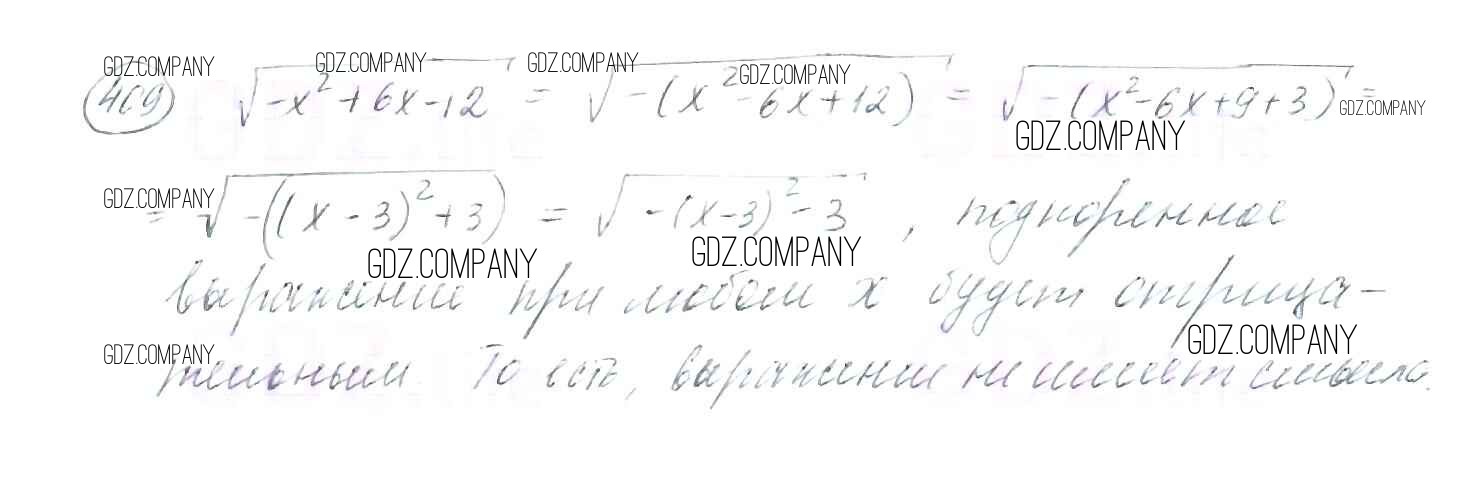 409 √-x²+6x-12 = √-(x²-6x+12) = √-(x²-6x+9+3) =
= √-((x-3)²+3) = √-(x-3)²-3 , подкоренное
выражение при любом x будет отрица-
тельным. То есть, выражение не имеет смысла.
GDZ.COMPANY
GDZ.COMPANY
GDZ.COMPANY
GDZ.COMPANY
GDZ.COMPANY
GDZ.COMPANY
GDZ.COMPANY
GDZ.COMPANY
GDZ.COMPANY
GDZ.COMPANY
GDZ.COMPANY